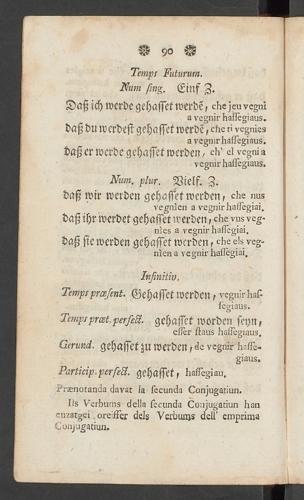 ❉ 90 ❉
Temps Futurum.
Num sing. Eins Z.
Daß ich werde gehasset werdē, che jeu vegni
a vegnir hassegiaus.
daß du werdest gehasset werdē, che ti vegnies
a vegnir hassegiaus.
daß er werde gehasset werden, ch' el vegni a
vegnir hassegiaus.
Num. plur. Vielf. Z.
daß wir werden gehasset werden, che nus
vegnien a vegnir hassegiai.
daß ihr werdet gehasset werden, che vus veg-
nies a vegnir hassegiai.
daß sie werden gehasset werden, che els veg-
nien a vegnir hassegiai.
Infinitiv.
Temps præsent. Gehasset werden, vegnir has-
segiaus.
Temps præt. perfect. gehasset worden seyn,
esser staus hassegiaus.
Gerund. gehasset zu werden, de vegnir hasse-
giaus.
Particip. perfect. gehasset, hassegiau.
Prænotanda davat la secunda Conjugatiun.
Ils Verbums della secunda Conjugatiun han
enzatgei oreisser dels Verbums dell' emprima
Conjugatiun.